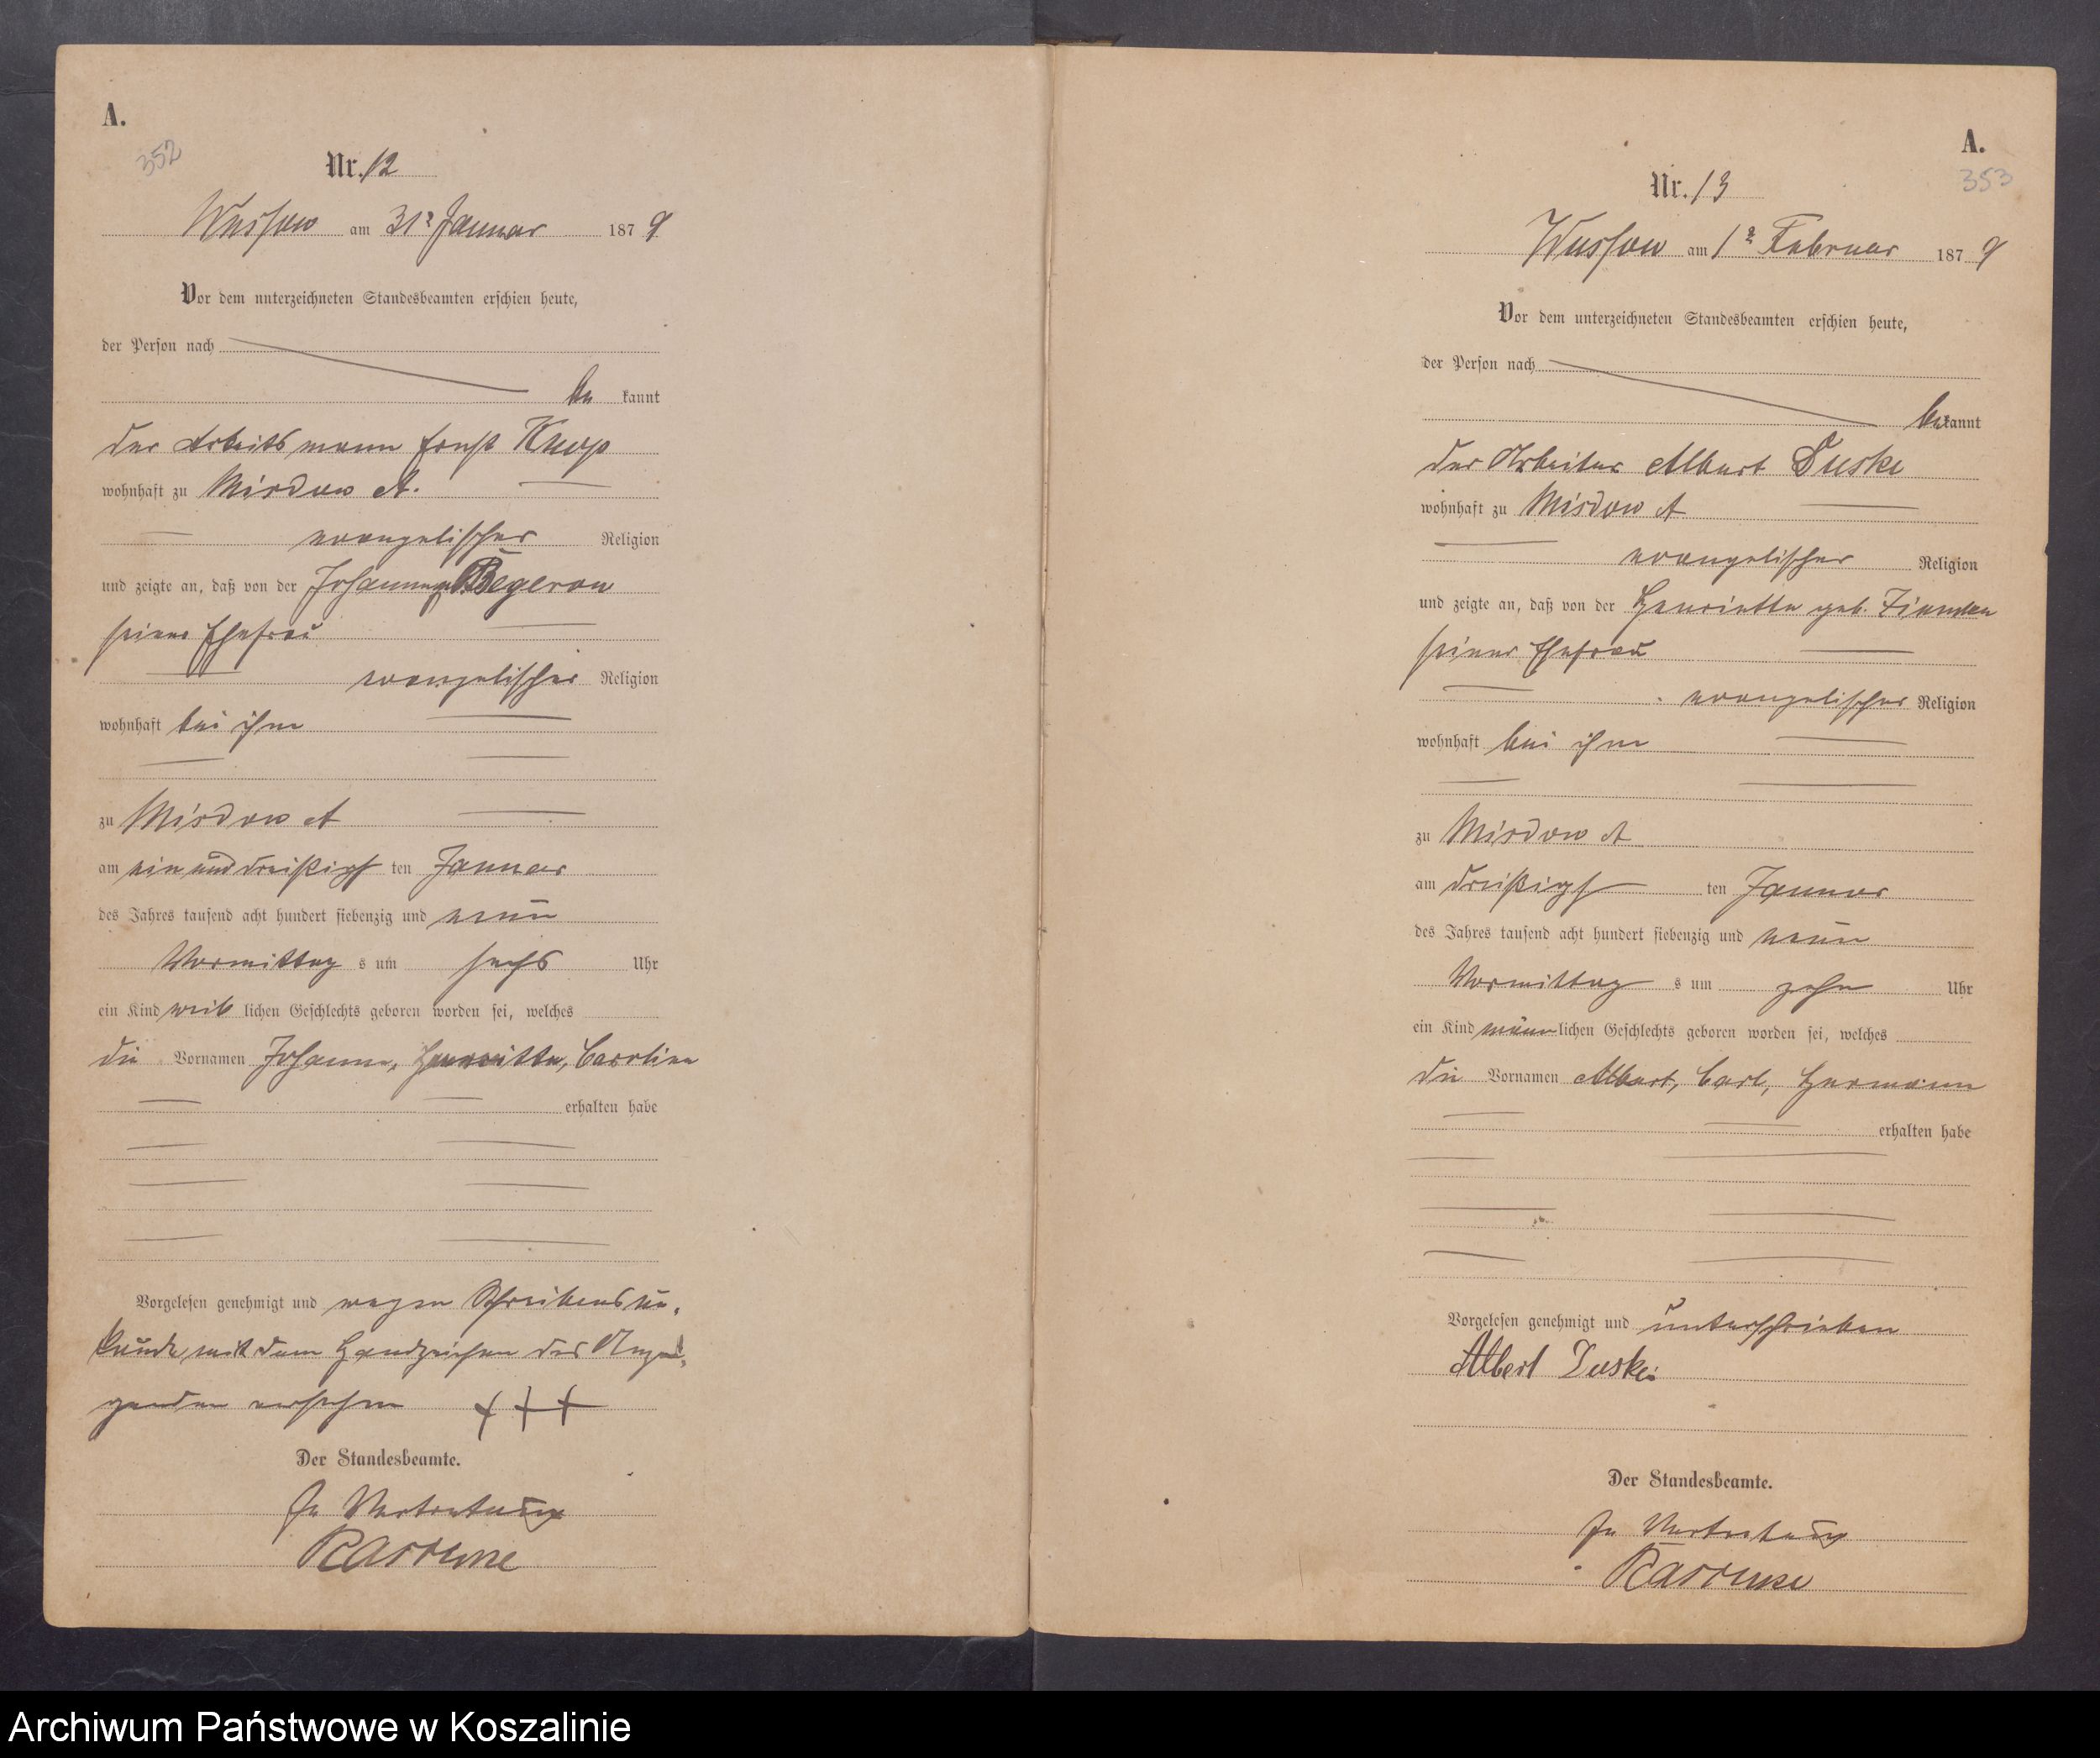 A.
352
Nr. 12
Wussow am 31ᵗ Januar 1879
Vor dem unterzeichneten Standesbeamten erschien heute,
der Person nach
be kannt
der Arbeitsmann Ernst Knop
wohnhaft zu Misdow A.
evangelischer Religion
und zeigte an, daß von der Johanne geb Begerow
seiner Ehefrau
evangelischer Religion
wohnhaft bei ihm
zu Misdow A
am ein und dreißigs ten Januar
des Jahres tausend acht hundert siebenzig und neun
Vormittag s um sechs Uhr
ein Kind weib lichen Geschlechts geboren worden sei, welches
die Vornamen Johanne, Henriette, Caroline
erhalten habe
Vorgelesen genehmigt und wegen Schreibensun-
kunde mit dem Handzeichen des Anzei-
genden versehen +++
Der Standesbeamte.
In Vertretung
A.
353
Nr. 13
Wussow am 1ᵗ Februar 1879
Vor dem unterzeichneten Standesbeamten erschien heute,
der Person nach
bekannt
der Arbeiter Albert Duske
wohnhaft zu Misdow A
evangelischer Religion
und zeigte an, daß von der Henriette geb.
seiner Ehefrau
evangelischer Religion
wohnhaft bei ihm
zu Misdow A
am dreißigs ten Januar
des Jahres tausend acht hundert siebenzig und neun
Vormittag s um zehn Uhr
ein Kind männlichen Geschlechts geboren worden sei, welches
die Vornamen Albert, Carl, Hermann
erhalten habe
Vorgelesen genehmigt und unterschrieben
Albert Duske
Der Standesbeamte.
In Vertretung
Archiwum Państwowe w Koszalinie